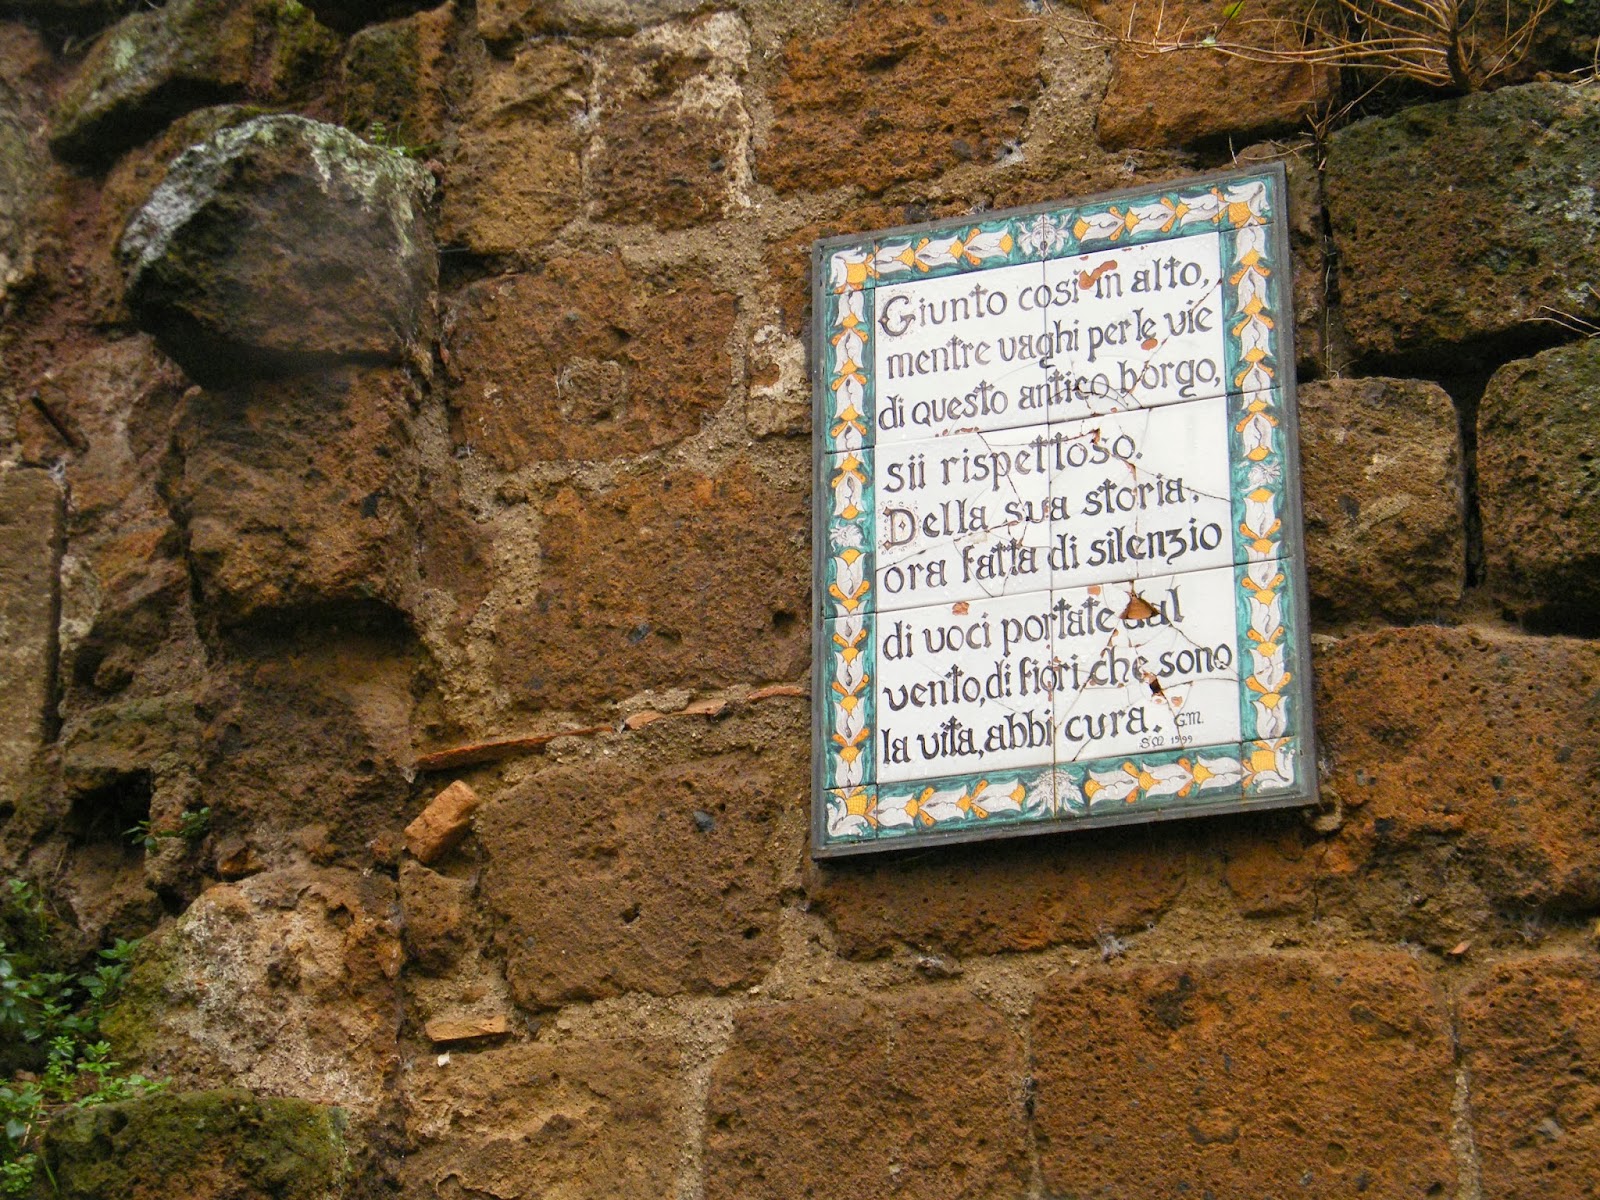 Giunto così in alto,
mentre vaghi per le vie
di questo antico borgo,
sii rispettoso.
Della sua storia,
ora fatta di silenzio
di voci portate dal
vento, di fiori che sono
la vita, abbi cura.
G.M.
S.M 1999